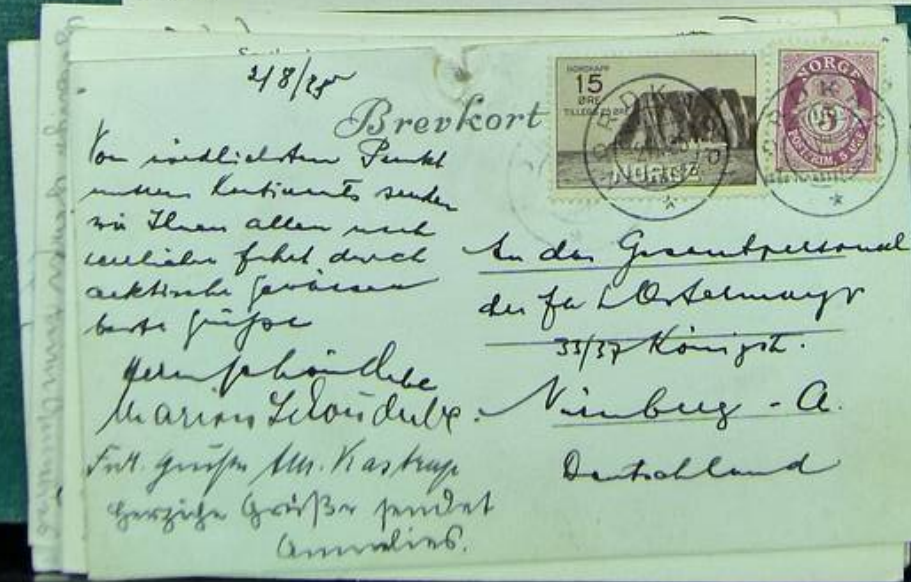 2/8/35
Brevkort
NORDKAPP
15
ØRE
TILLEGG 25 ØRE
NORGE
NORGE
5
POSTFRIM. 5 ØRE
Vom nördlichsten Punkt
unseres Kontinents senden
wir Ihnen allen nach
herrlicher Fahrt durch
arktische Gewässer
beste Grüße
Marion
Frdl. Grüße Kastrup
Herzliche Grüße sendet
Annelies.
An das Gesamtpersonal
der Fa L Ostermayr
33/37 Königstr.
Nürnberg - A.
Deutschland